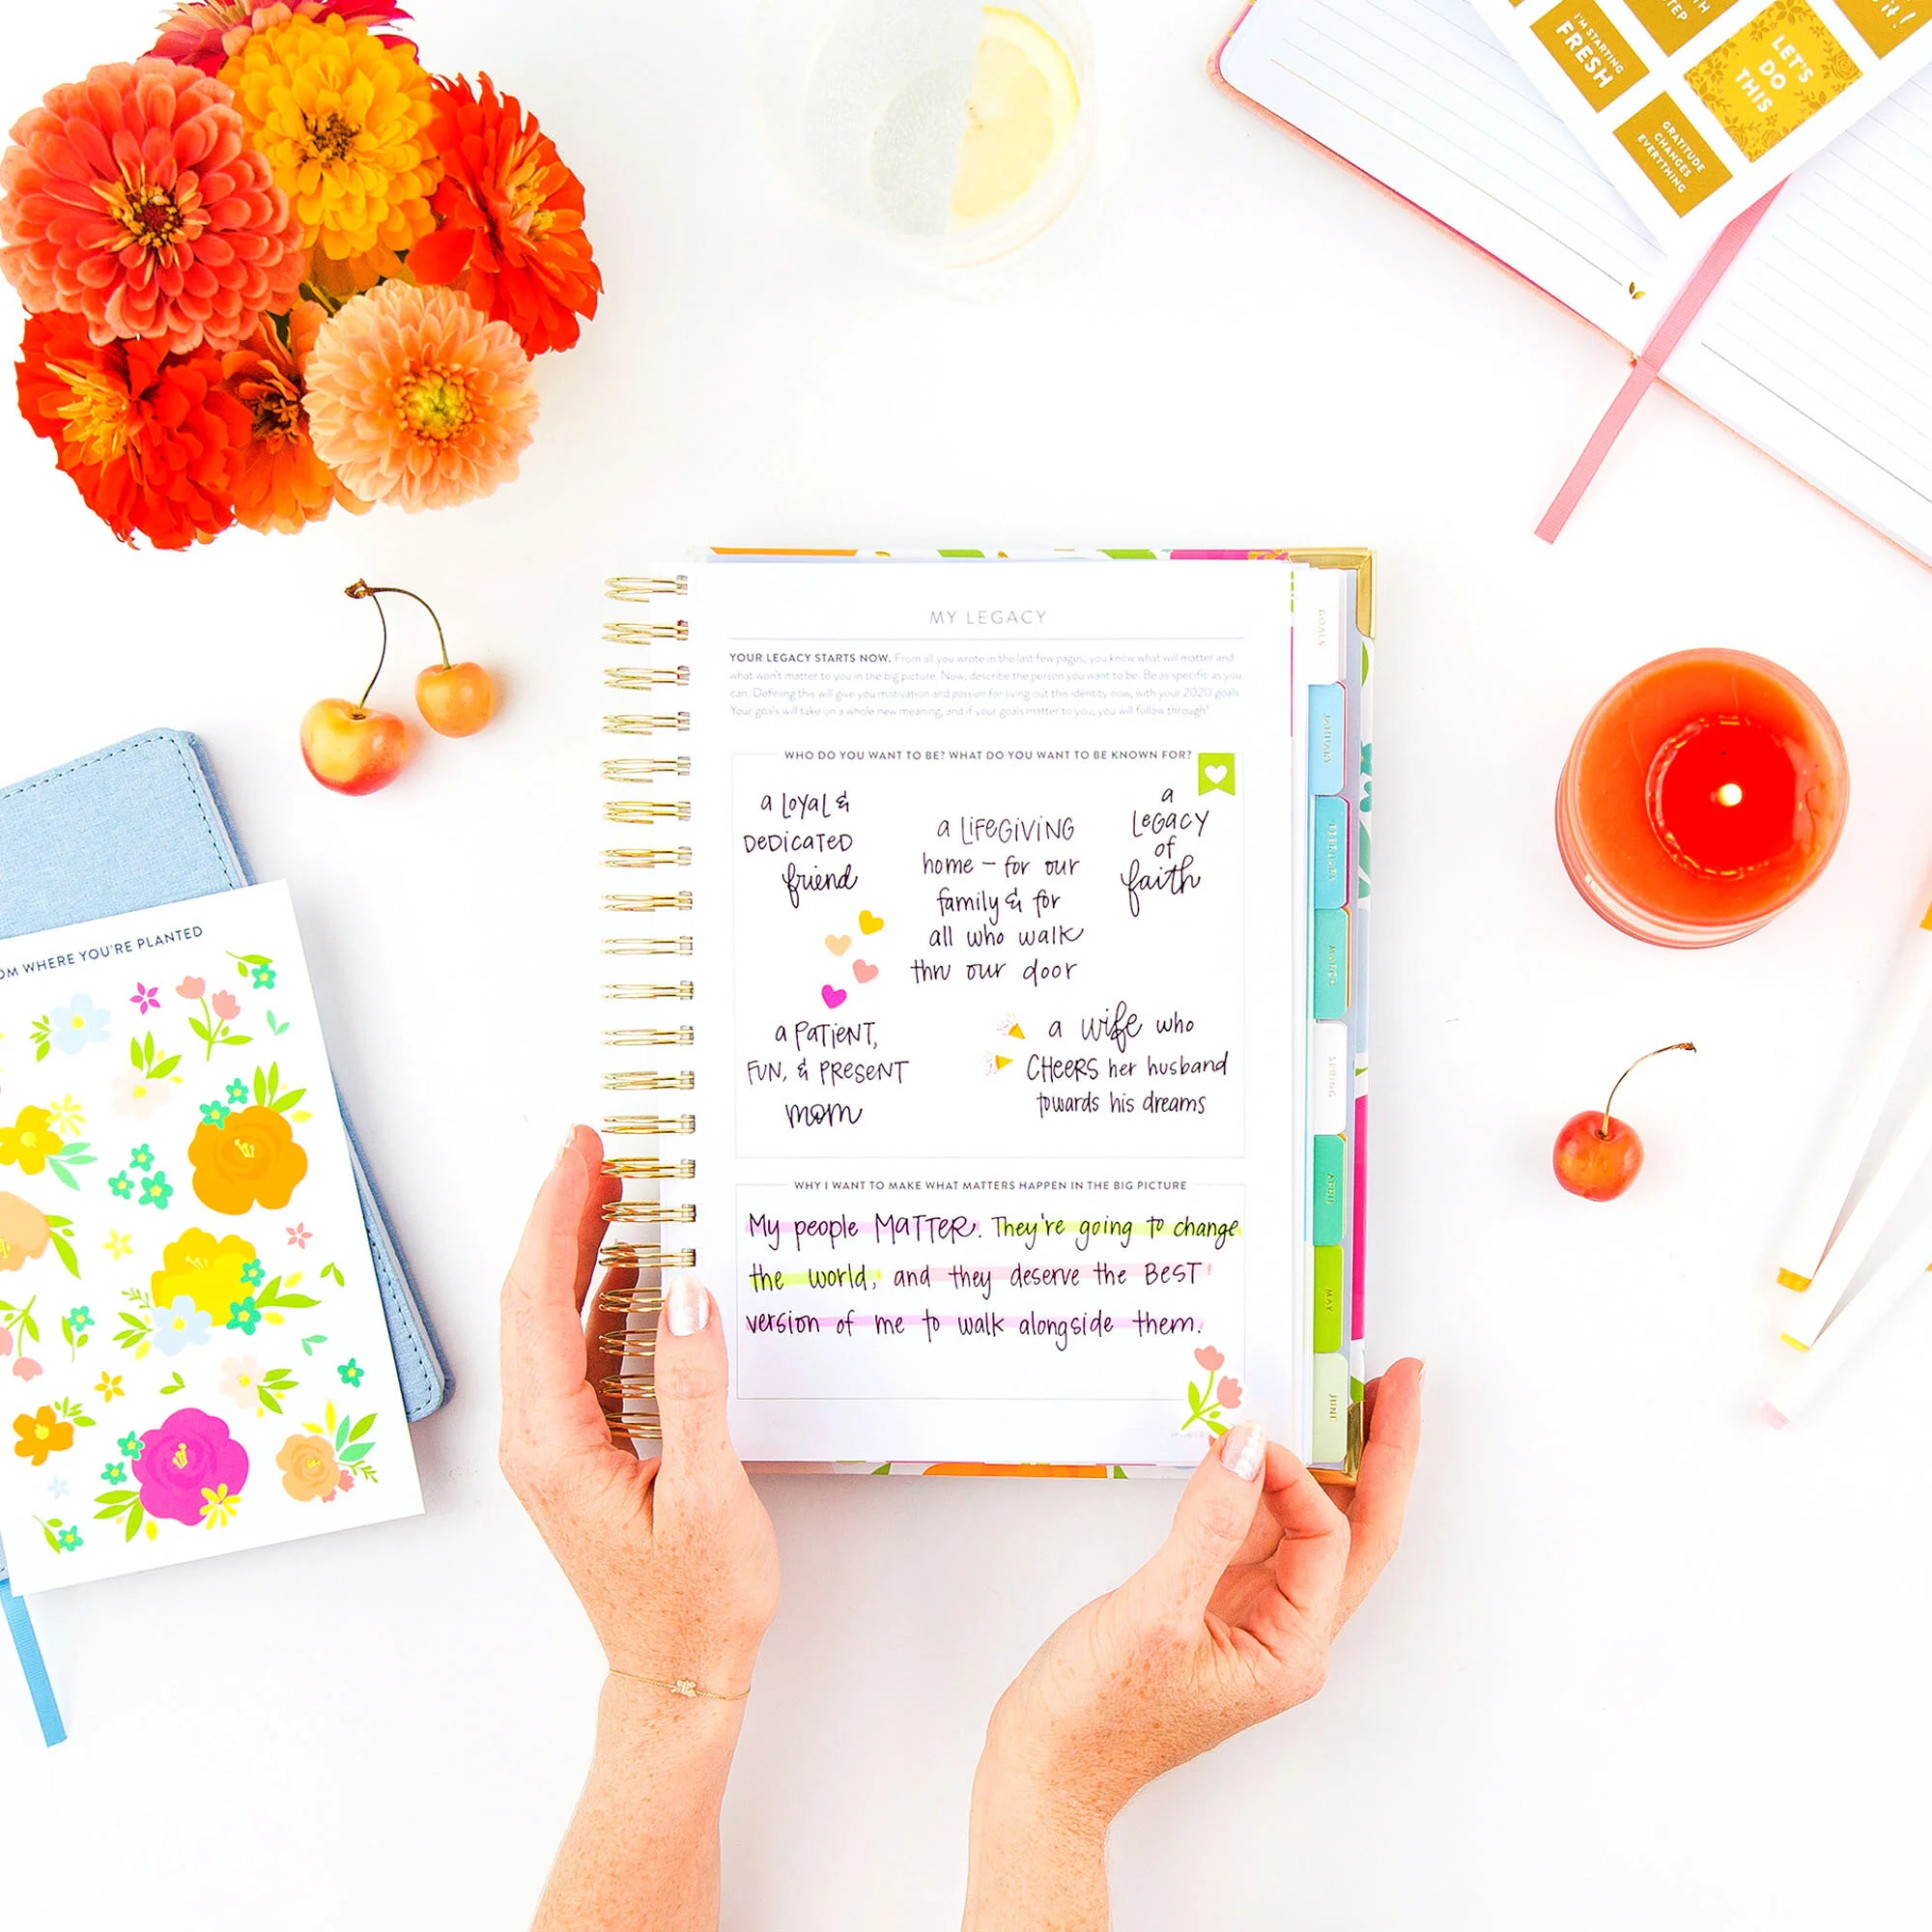 I'M STARTING
FRESH
STEP
LET'S
DO
THIS
it!
GRATITUDE
CHANGES
EVERYTHING
MY LEGACY
YOUR LEGACY STARTS NOW. From all you wrote in the last few pages, you know what will matter and
what won't matter to you in the big picture. Now, describe the person you want to be. Be as specific as you
can. Defining this will give you motivation and passion for living out this identity now, with your 2020 goals.
Your goals will take on a whole new meaning, and if your goals matter to you, you will follow through!
WHO DO YOU WANT TO BE? WHAT DO YOU WANT TO BE KNOWN FOR?
a LOYAL &
DEDICATED
friend
a LIFEGIVING
home – for our
family & for
all who walk
thru our door
a
LEGACY
of
faith
a PATIENT,
FUN, & PRESENT
mom
a wife who
CHEERS her husband
towards his dreams
WHY I WANT TO MAKE WHAT MATTERS HAPPEN IN THE BIG PICTURE
My people MATTER. They're going to change
the world, and they deserve the BEST
version of me to walk alongside them.
GOALS
JANUARY
FEBRUARY
MARCH
SPRING
APRIL
MAY
JUNE
OM WHERE YOU'RE PLANTED